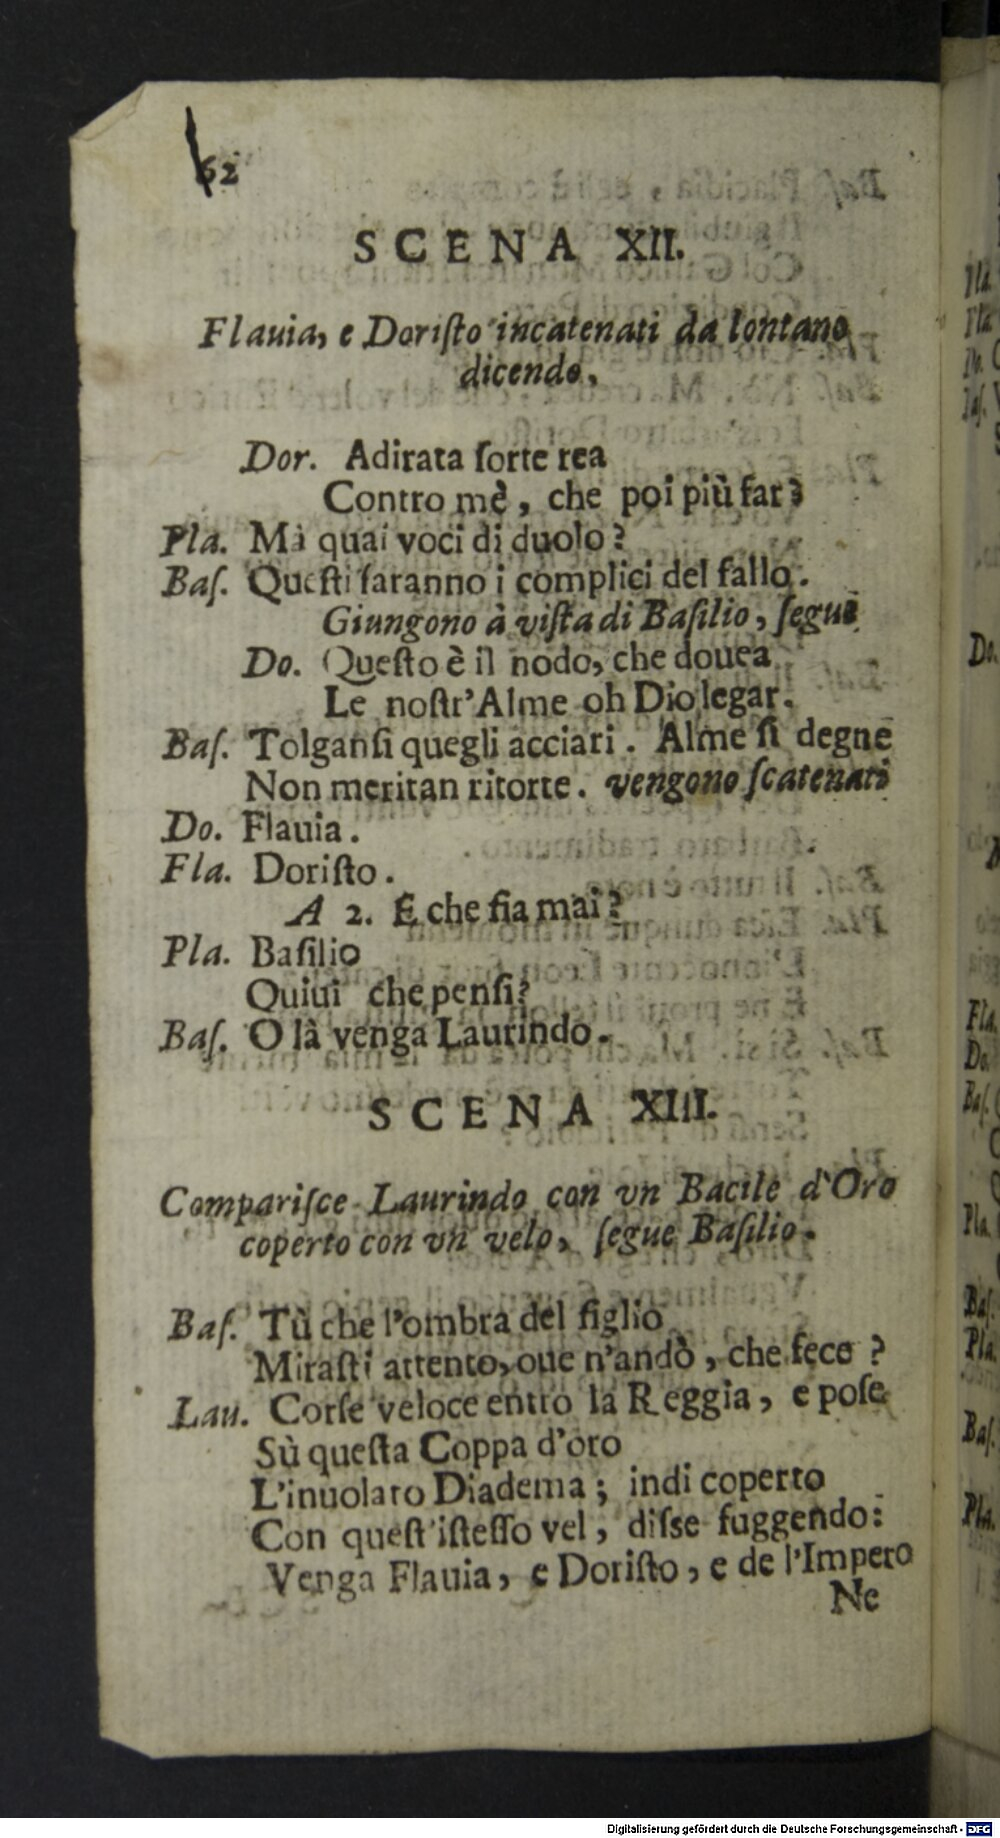 62
SCENA XII.
Flauia, e Doriſto incatenati da lontano
dicendo,
Dor. Adirata ſorte rea
Contro mè, che poi più far?
Pla. Mà quai voci di duolo?
Baſ. Queſti ſaranno i complici del fallo.
Giungono à viſta di Baſilio, ſegue
Do. Queſto è il nodo, che douea
Le noſtr'Alme oh Dio legar.
Baſ. Tolganſi quegli acciari. Alme ſi degne
Non meritan ritorte. vengono ſcatenati
Do. Flauia.
Fla. Doriſto.
A 2. E che fia mai?
Pla. Baſilio
Quiui che penſi?
Baſ. O là venga Laurindo.
SCENA XIII.
Compariſce Laurindo con vn Bacile d'Oro
coperto con vn velo, ſegue Baſilio.
Baſ. Tù che l'ombra del figlio
Miraſti attento, oue n'andò, che fece?
Lau. Corſe veloce entro la Reggia, e poſe
Sù queſta Coppa d'oro
L'inuolato Diadema; indi coperto
Con queſt'iſteſſo vel, diſse fuggendo:
Venga Flauia, e Doriſto, e de l'Impero
Ne
Digitalisierung gefördert durch die Deutsche Forschungsgemeinschaft - DFG